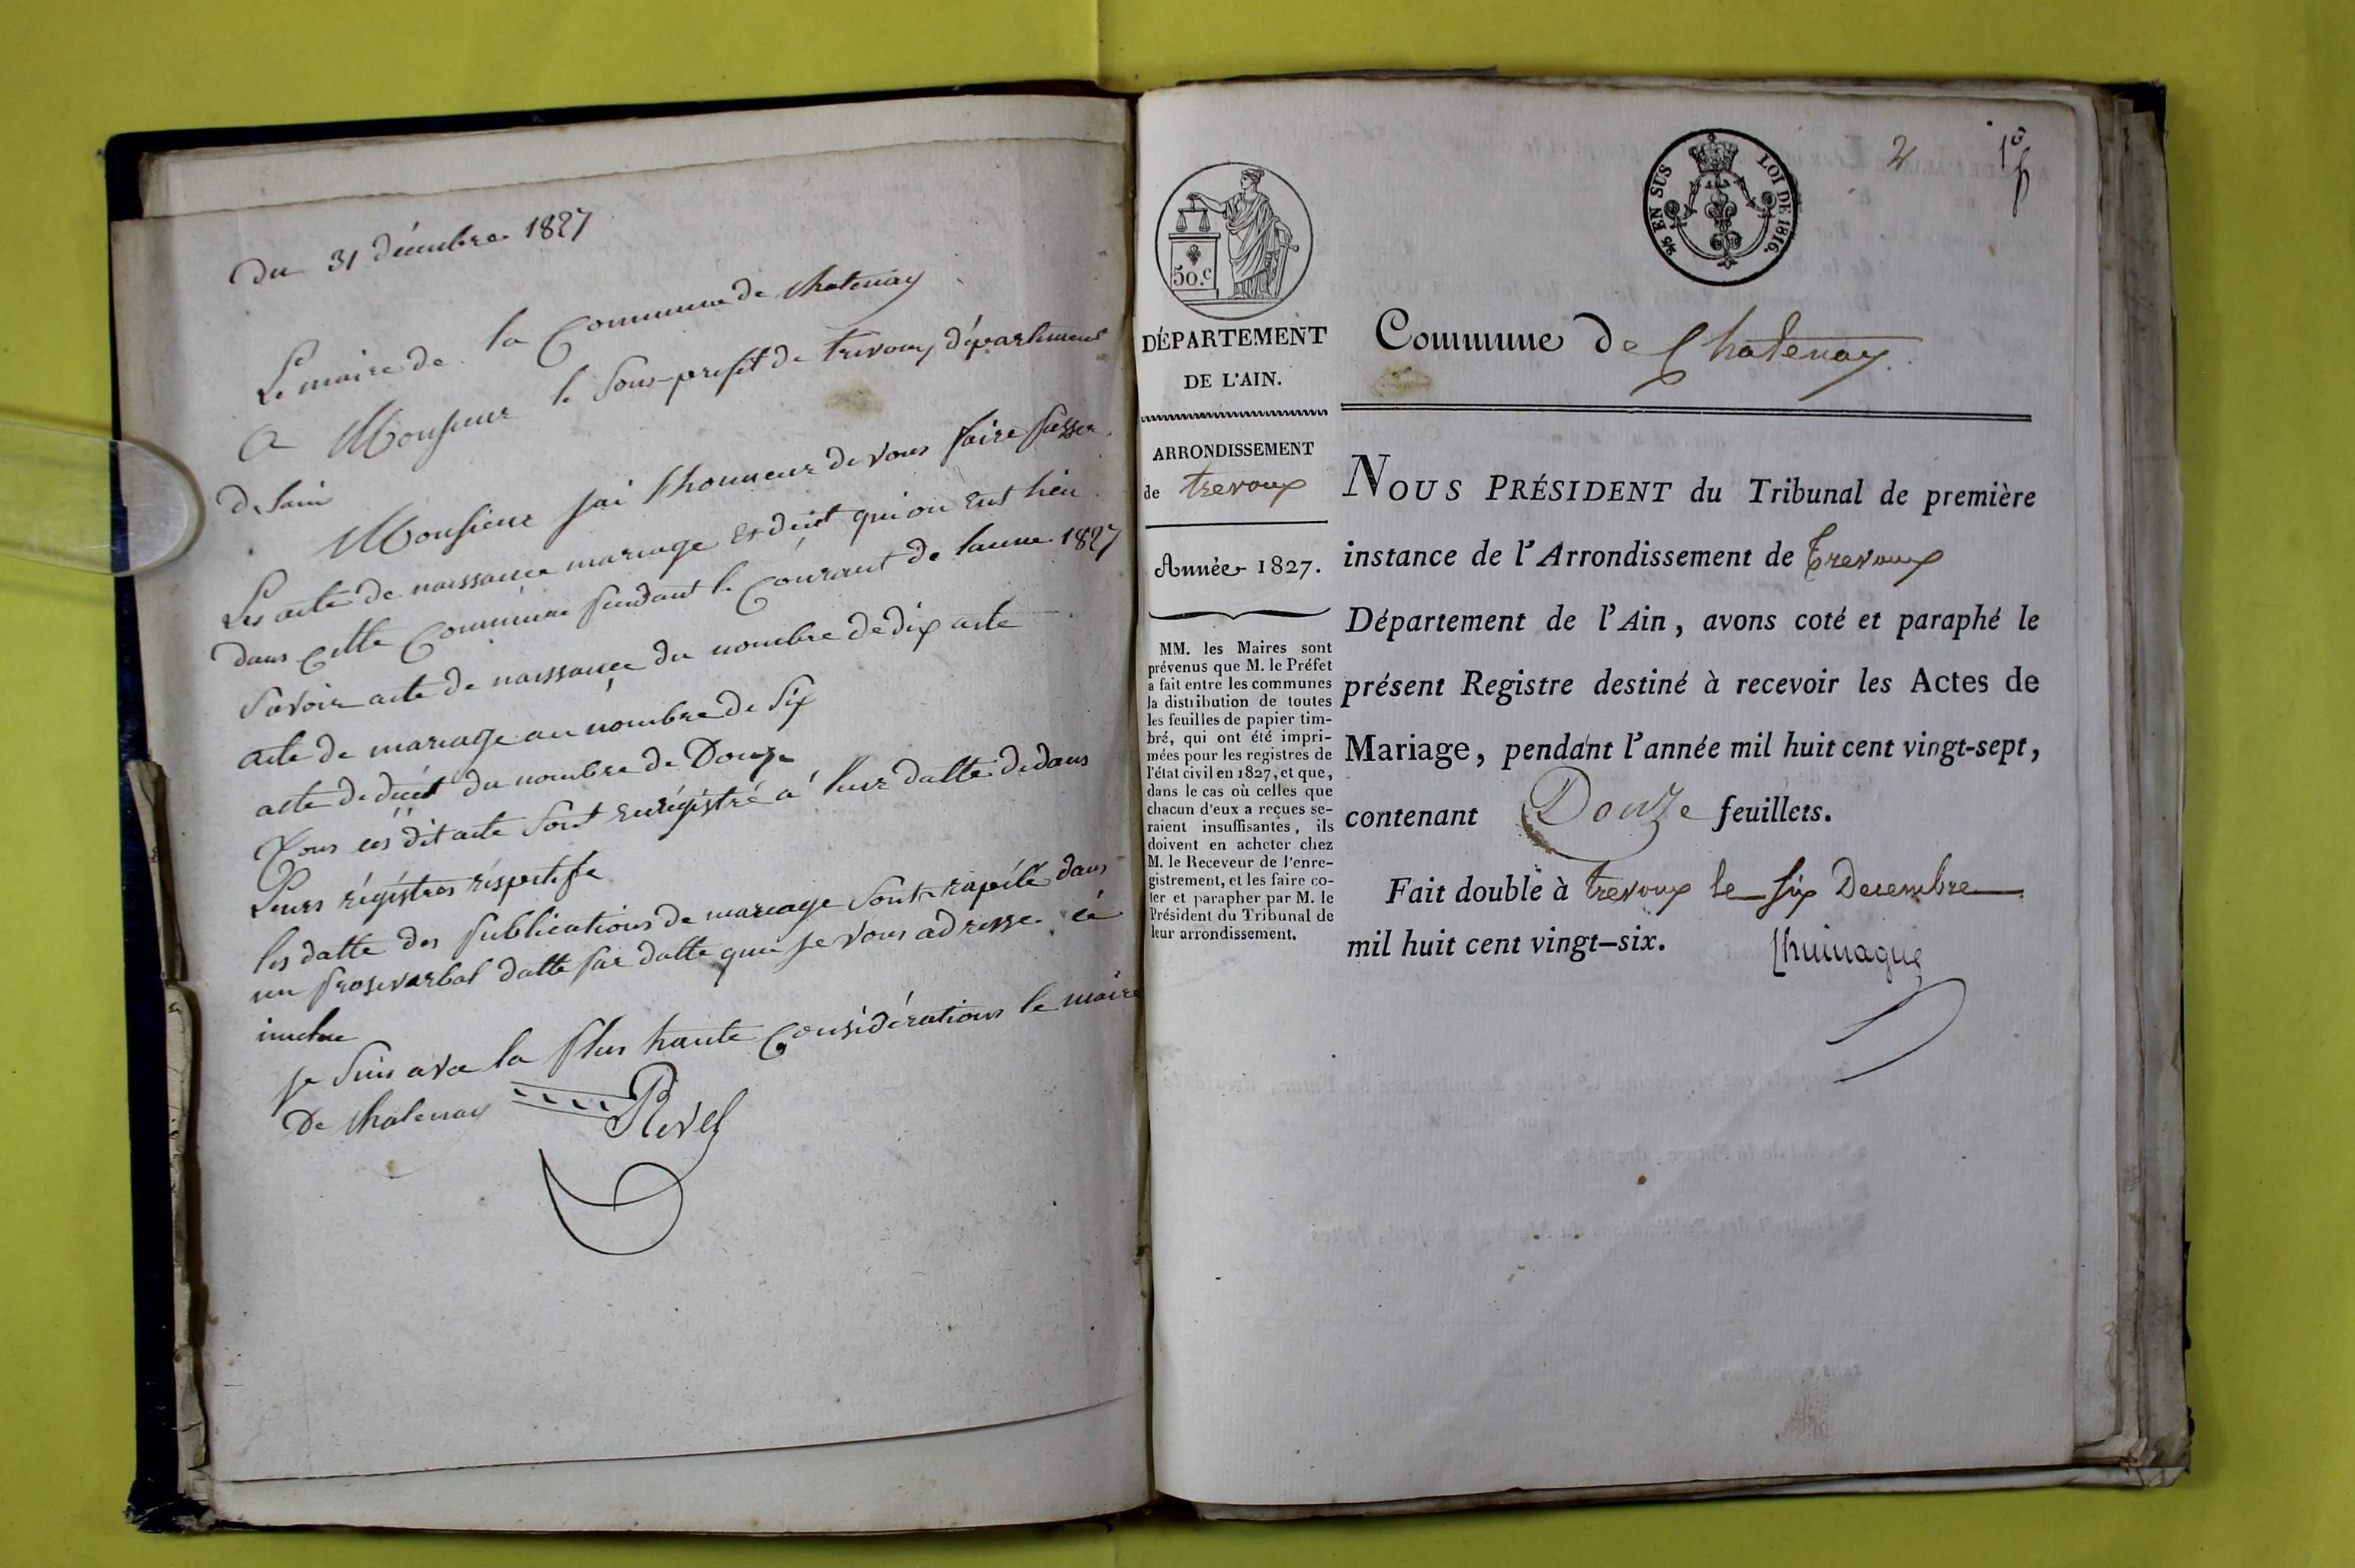 Du 31 décembre 1827
Le maire de la Commune de chatenay
A Monsieur le Sous-prefet de trevoux département
De lain
Monsieur jai lhonneur de vous faire passer
Les acte de naissance mariage et décét qui on eut lieu
dans cette Commune pendant le Courant de lanne 1827
Savoir acte de naissance du nombre de dix acte
acte de mariage au nombre de Six
acte de décét du nombre de Douze
Tous cés dit acte sont enrégistré a leur datte dedans
Leurs régistres réspectifs
les datte des publications de mariage sont rapélé dans
un prosevarbal datte par datte que je vous adresse ci
incluse
je suis avec la plus haute Considérations le maire
De chatenay
Rivel
50.c
DÉPARTEMENT
DE L'AIN.
ARRONDISSEMENT
de trevoux
Année 1827.
MM. les Maires sont
prévenus que M. le Préfet
a fait entre les communes
la distribution de toutes
les feuilles de papier tim-
bré, qui ont été impri-
mées pour les registres de
l'état civil en 1827, et que,
dans le cas où celles que
chacun d'eux a reçues se-
raient insuffisantes, ils
doivent en acheter chez
M. le Receveur de l'enre-
gistrement, et les faire co-
ter et parapher par M. le
Président du Tribunal de
leur arrondissement.
EN SUS LOI DE 1816.
2
1
Commune de Chatenay.
NOUS PRÉSIDENT du Tribunal de première
instance de l'Arrondissement de Trevoux
Département de l'Ain, avons coté et paraphé le
présent Registre destiné à recevoir les Actes de
Mariage, pendant l'année mil huit cent vingt-sept,
contenant Douze feuillets.
Fait double à trevoux le six Decembre
mil huit cent vingt-six.